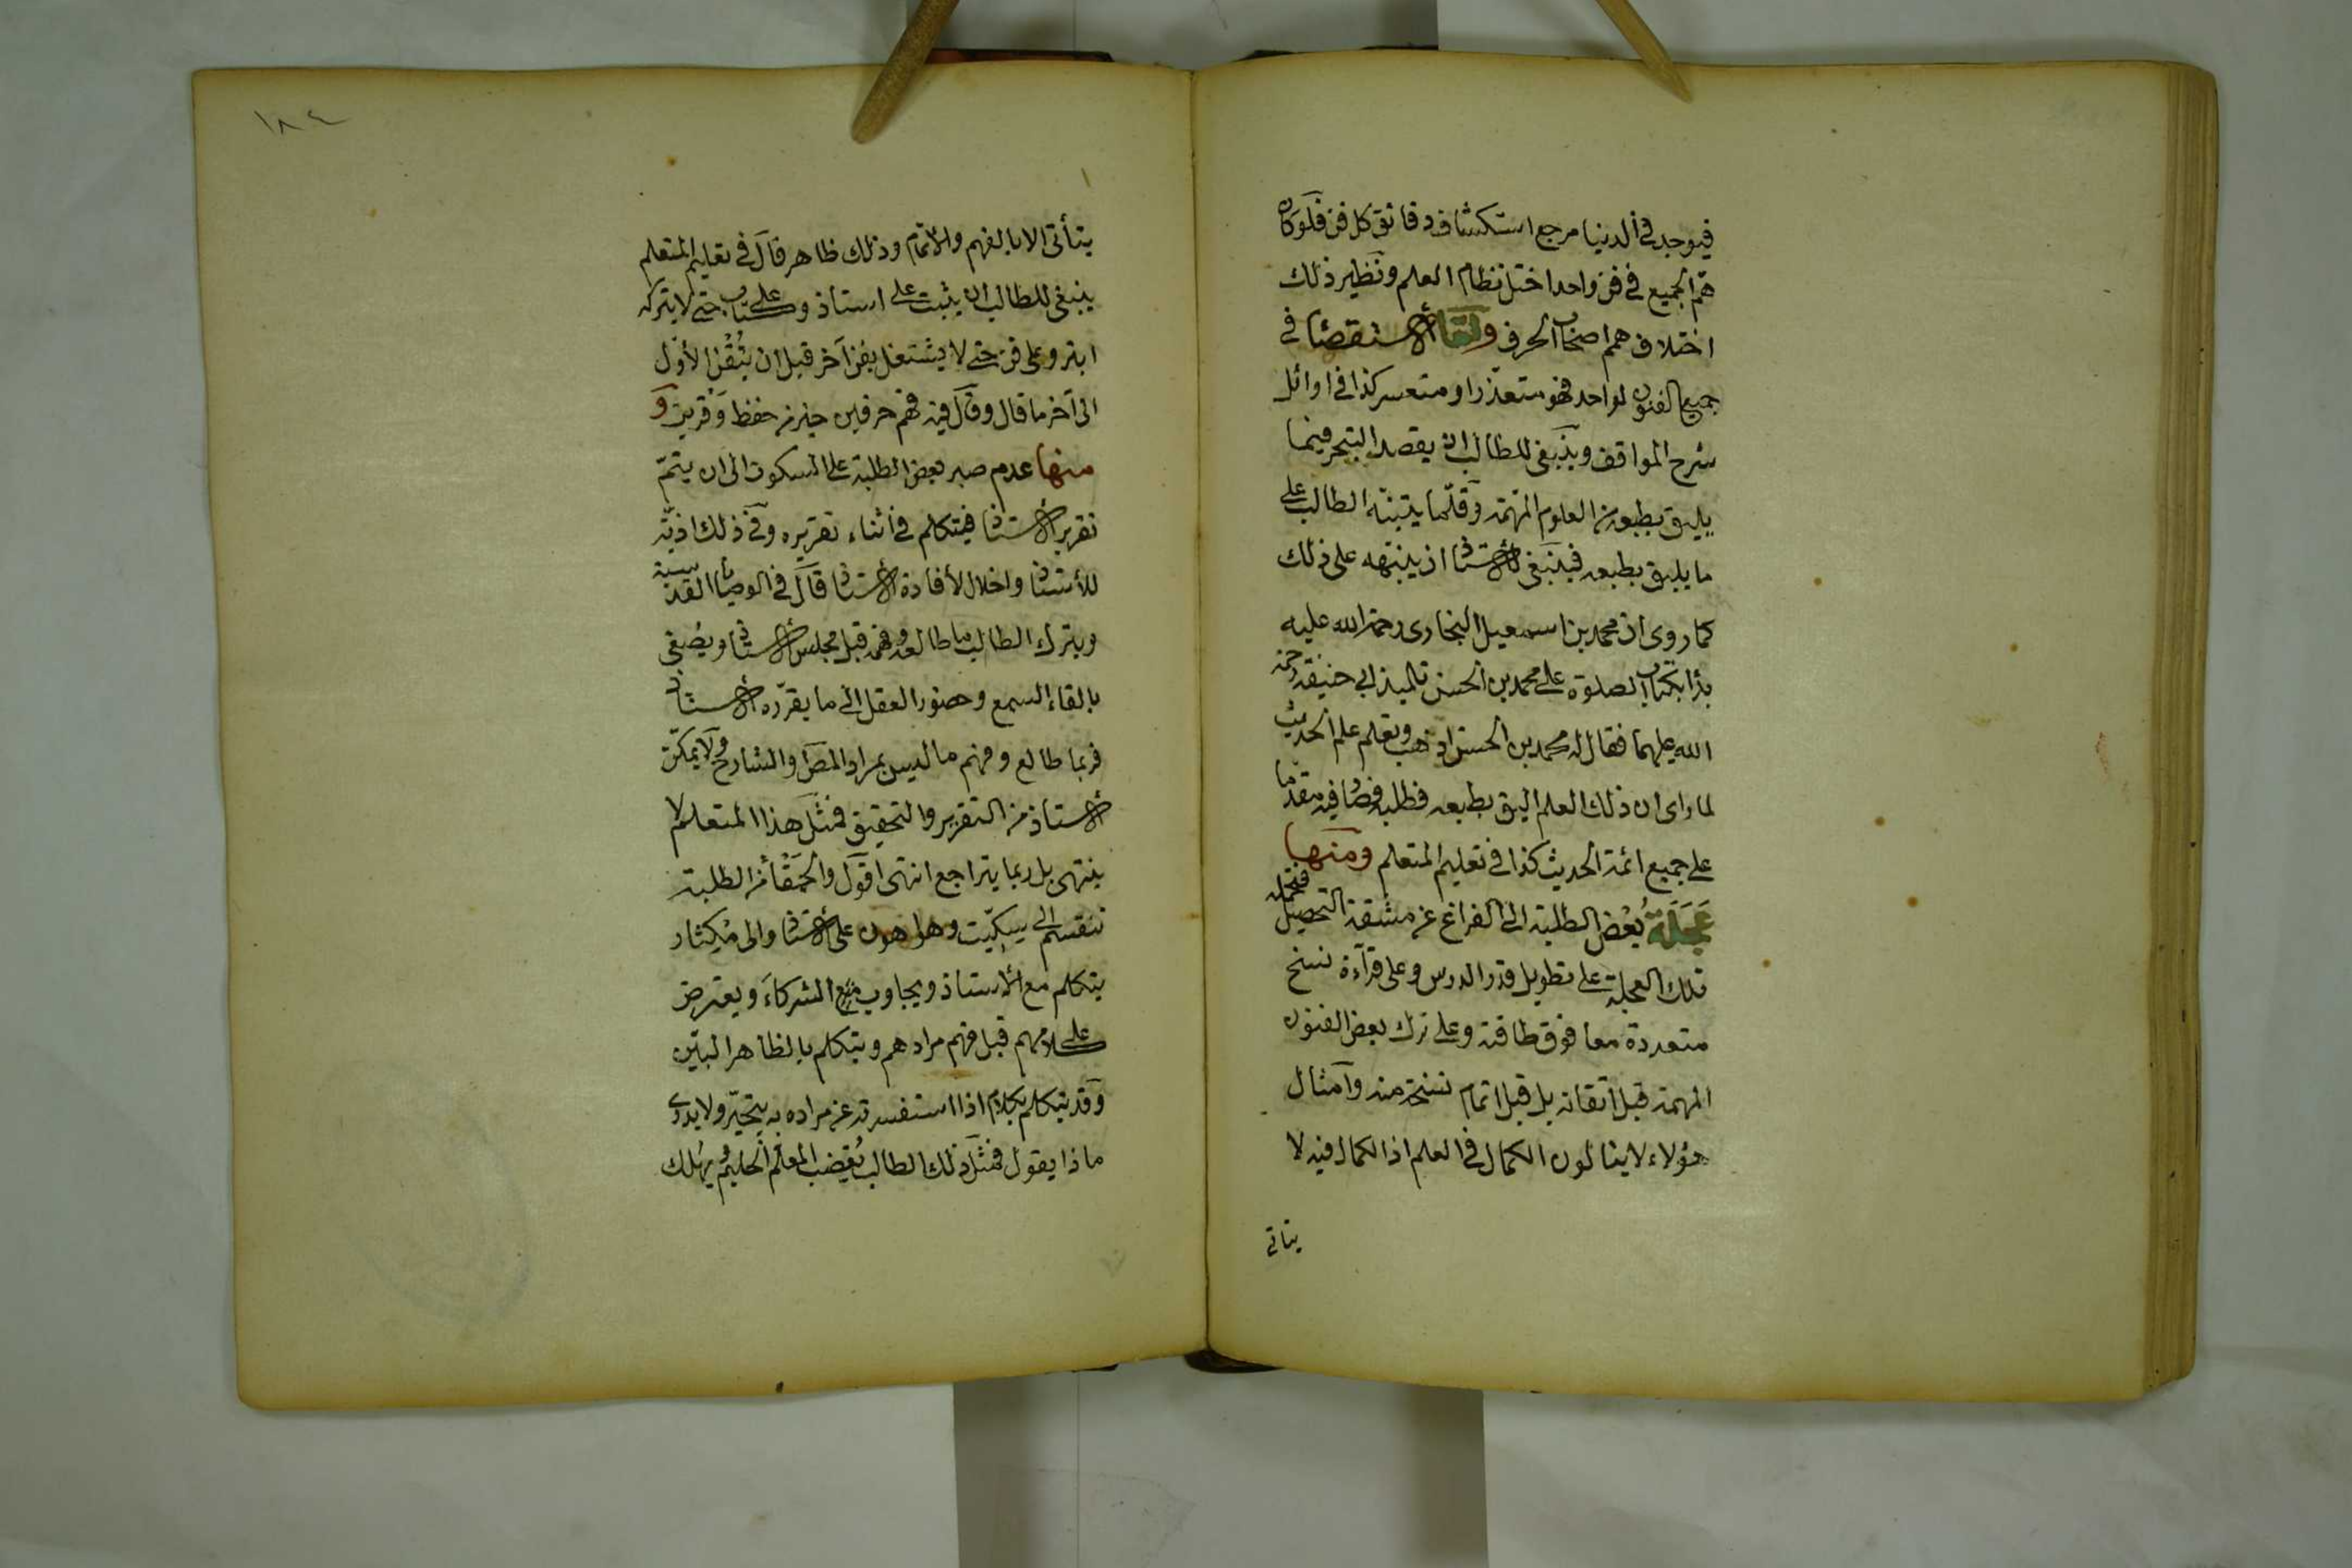 فيوجد في الدنيا مرجع استكشاف دقائق كل فن فلو كان
همّ الجميع في فن واحد اختل نظام العلم ونظير ذلك
اختلاف همم اصحاب الحرف واما الاستقصاء في
جميع الفنون لواحد فهو متعذّر او متعسر كذا في اوائل
شرح المواقف وينبغي للطالب ان يقصد التبحر فيما
يليق بطبعه من العلوم المهمّة وقلّما يتنبّه الطالب على
ما يليق بطبعه فينبغي للاستاذ ان ينبّهه على ذلك
كما روى ان محمد بن اسمعيل البخارى رحمة الله عليه
بدأ بكتاب الصلوة على محمد بن الحسن تلميذ ابي حنيفة رحمة
الله عليهما فقال له محمد بن الحسن اذهب وتعلم علم الحديث
لما راى ان ذلك العلم اليق بطبعه فطلبه فصار فيه مقدّما
على جميع ائمة الحديث كذا في تعليم المتعلم ومنها
عَجَلَةُ بعض الطلبة الى الفراغ عن مشقة التحصيل فتحمله
تلك العجلة على تطويل قدر الدرس وعلى قراءة نسخ
متعددة معا فوق طاقته وعلى ترك بعض الفنون
المهمة قبل اتقانه بل قبل اتمام نسخة منه وامثال
هؤلاء لا ينالون الكمال في العلم اذ الكمال فيه لا
يتأتى
١٨٤
يتأتى الا بالفهم والاتمام وذلك ظاهر قال في تعليم المتعلم
ينبغي للطالب ان يثبت على استاذ وعلى كتاب حتى لا يتركه
ابتر وعلى فن حتى لا يشتغل بفن آخر قبل ان يُتْقن الأوّل
الى آخر ما قال وقال فيه فهم حرفين خير من حفظ وقرين و
منها عدم صبر بعض الطلبة على السكوت الى ان يتمّ
تقرير الاستاذ فيتكلم في أثناء تقريره وفي ذلك اذيّة
للأستاذ واخلال لأفادة الأستاذ قال في الوصايا القدسية
ويترك الطالب ما طالعه وفهمه قبل مجلس الأستاذ ويصغي
بالقاء السمع وحضور العقل الى ما يقرّره الأستاذ
فربما طالع وفهم ما ليس بمراد المص والشارح ولا يمكّن
الأستاذ من التقرير والتحقيق فمثل هذا المتعلم لا
ينتهي بل ربما يتراجع انتهى اقول والحمقاء من الطلبة
تنقسم الى سِكّيت وهو اهون على الأستاذ والى مِكثار
يتكلم مع الأستاذ ويجاوب مع الشركاء ويعترض
على كلامهم قبل فهم مرادهم ويتكلم بالظاهر البيّن
وقد يتكلم بكلام اذا استفسرته عن مراده به يتحيّر ولا يدرى
ماذا يقول فمثل ذلك الطالب يُغضب المعلّم الحليم ويهلك